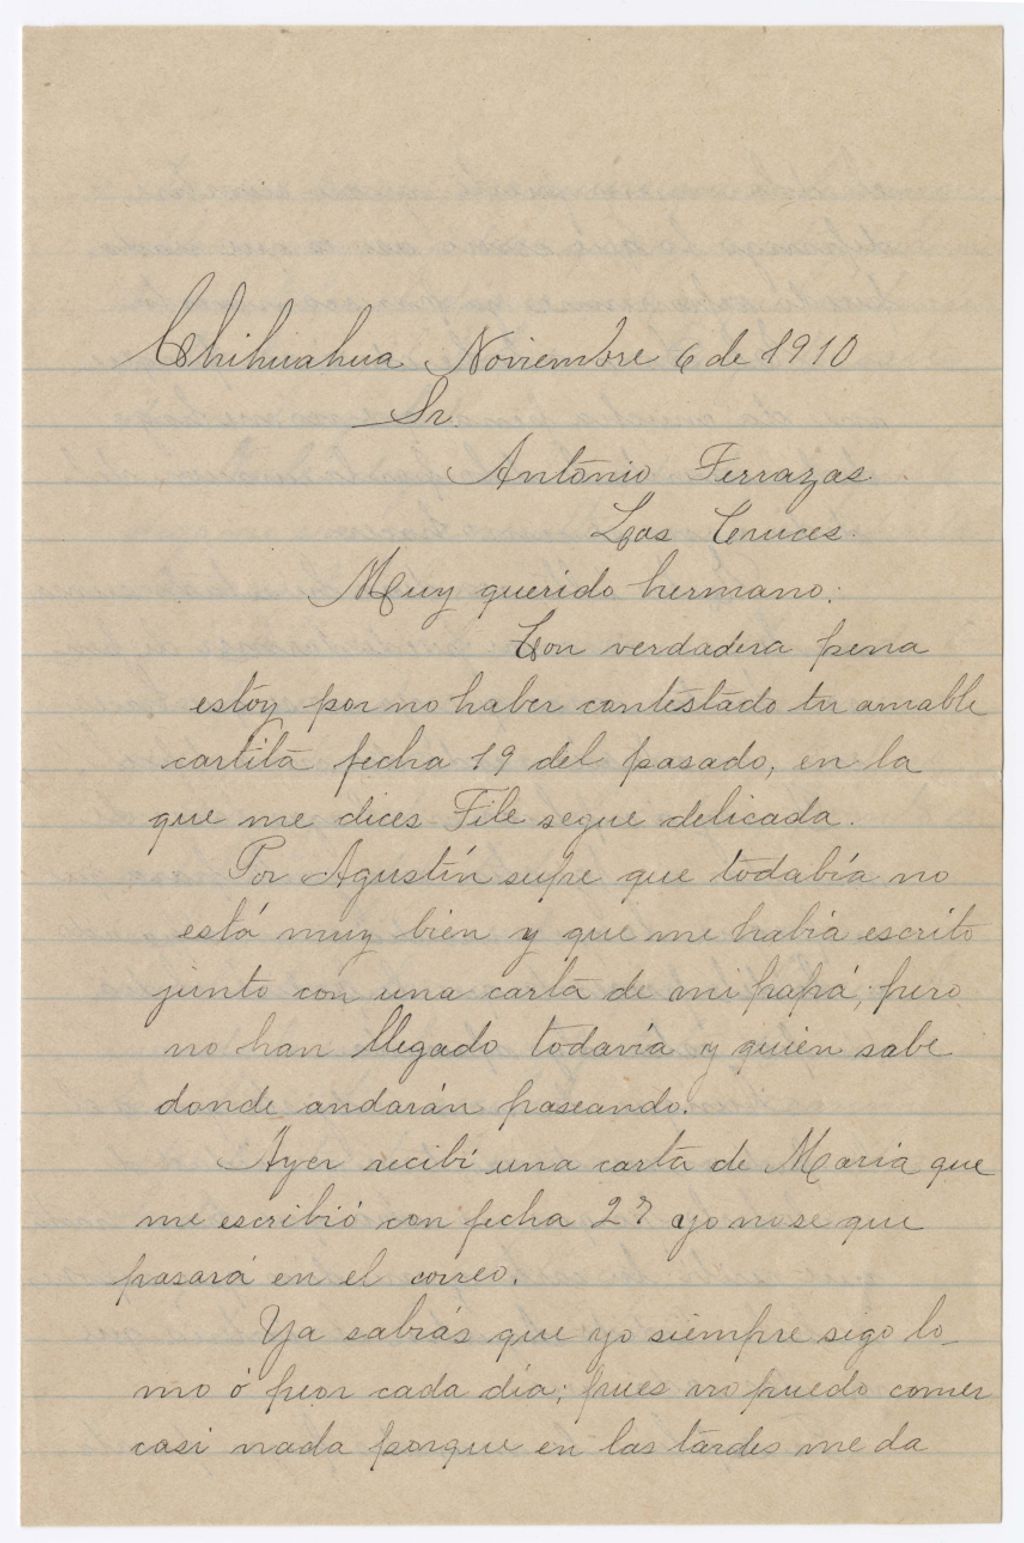 Chihuahua Noviembre 6 de 1910
Sr.
Antonio Terrazas.
Las Cruces.
Muy querido hermano:
Con verdadera pena
estoy por no haber contestado tu amable
cartita fecha 19 del pasado, en la
que me dices File segue delicada.
Por Agustín supe que todabía no
está muy bien y que me habia escrito
junto con una carta de mi papá; pero
no han llegado todavía y quién sabe
donde andarán paseando.
Ayer recibí una carta de María que
me escribió con fecha 27 yo no se que
pasará en el correo.
Ya sabrás que yo siempre sigo lo
mo ó peor cada día; pues no puedo comer
casi nada porque en las tardes me da